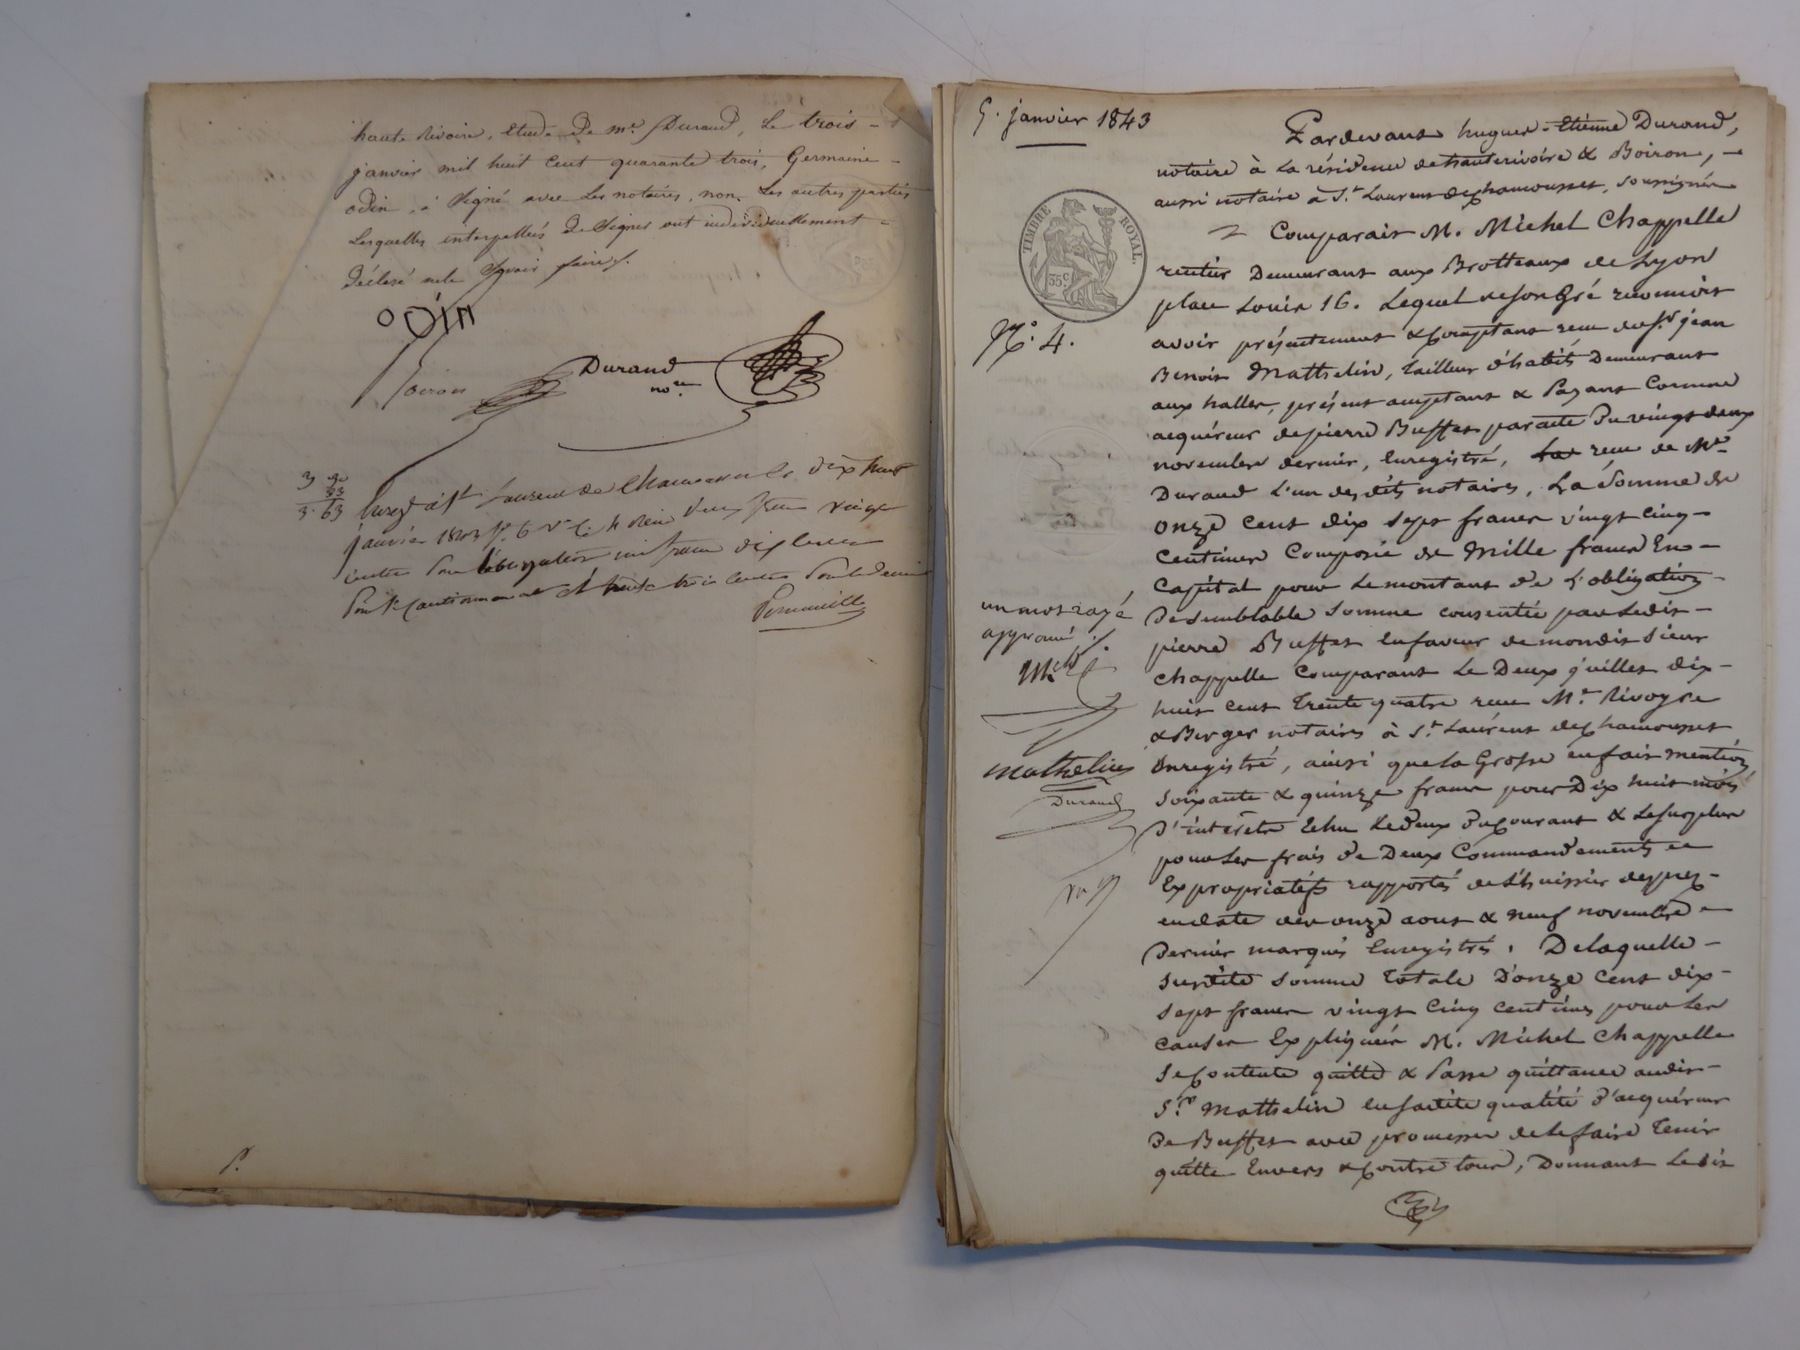 haute Rivoire, Etude de me. Durand, Le trois -
janvier mil huit cent quarante trois, Germaine -
odin, a signé avec les notaires, non les autres parties
Lesquelles interpellées de signer ont individuellement -
déclaré ne le savoir faire.
ODIN
Boiron
Durand
nore.
3 30
33
3.63
Enregé à St Laurent de Chamousset le dix huit
janvier 1843 fo. 6 Vo. Ce. 4 Reçu deux francs vingt
centimes pour l'obligation un franc dix centimes
pour le Cautionnement et trente trois centimes pour le decime
P.
5. janvier 1843
TIMBRE ROYAL.
35c
No. 4.
Pardevant hugues-Etienne Durand,
notaire à La résidence de hauterivoire & Boiron, -
aussi notaire à St. Laurent de chamousset, soussignés
Comparait M. Michel Chappelle
rentier Demeurant aux Brotteaux de Lyon
place Louis 16. Lequel de son gré reconnoit
avoir présentement & comptant reçu du sr. jean
Benoit Mathelin, tailleur d'habits Demeurant
aux halles, présent acceptant & Payant Comme
acquéreur de pierre Buffet par acte Du vingt deux
novembre dernier, Enregistré, reçu de Me.
Durand L'un des dits notaires, La Somme de
onze cent dix sept francs vingt cinq -
centimes Composée de Mille francs En -
capital pour le montant de L'obligation -
De semblable somme consentie par ledit -
pierre Buffet en faveur de mondit sieur
chappelle comparant Le Deux juillet dix -
huit cent trente quatre reçue Me. Rivoyre
& Berger notaires à St. Laurent de chamousset
Enregistré, ainsi que la Grosse en fait mention
soixante & quinze francs pour Dix huit mois
D'intérêts Echu le deux du courant & le surplus
pour les frais de Deux Commandements en
Expropriation rapportés de l'huissier
en date des onze aout & neuf novembre -
Dernier marqués Enregistrés. De laquelle -
susdite somme totale D'onze cent dix -
sept francs vingt cinq centimes pour les
causes Expliquées M. Michel Chappelle
se contente quitte & Passe quittance audit -
Sr. Mathelin en sa dite qualité d'acquéreur
De Buffet avec promesse de le faire tenir
quitte Envers & contre tous, Donnant ledit
un mot rayé
approuvé
Mch
Mathelin
Durand